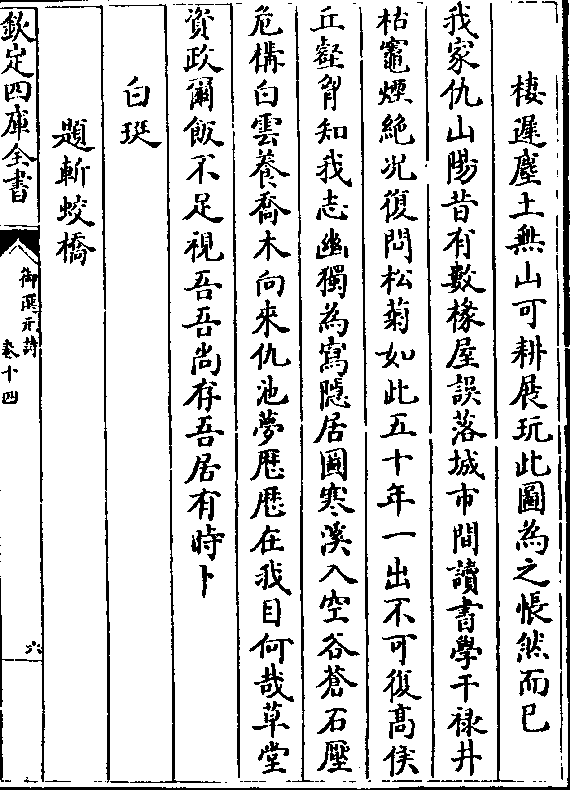 棲遲塵土無山可耕展玩此圖為之悵然而已
我家仇山陽昔有數椽屋誤落城市間讀書學干祿井
枯竈煙絶况復問松菊如此五十年一出不可復高侯
丘壑胷知我志幽獨為寫隠居圖寒溪入空谷蒼石壓
危構白雲養喬木向來仇池夢歴歴在我目何哉草堂
資政爾飯不足視吾吾尚存吾居有時卜
白珽
題斬蛟橋
欽定四庫全書
御選元詩
卷十四
六